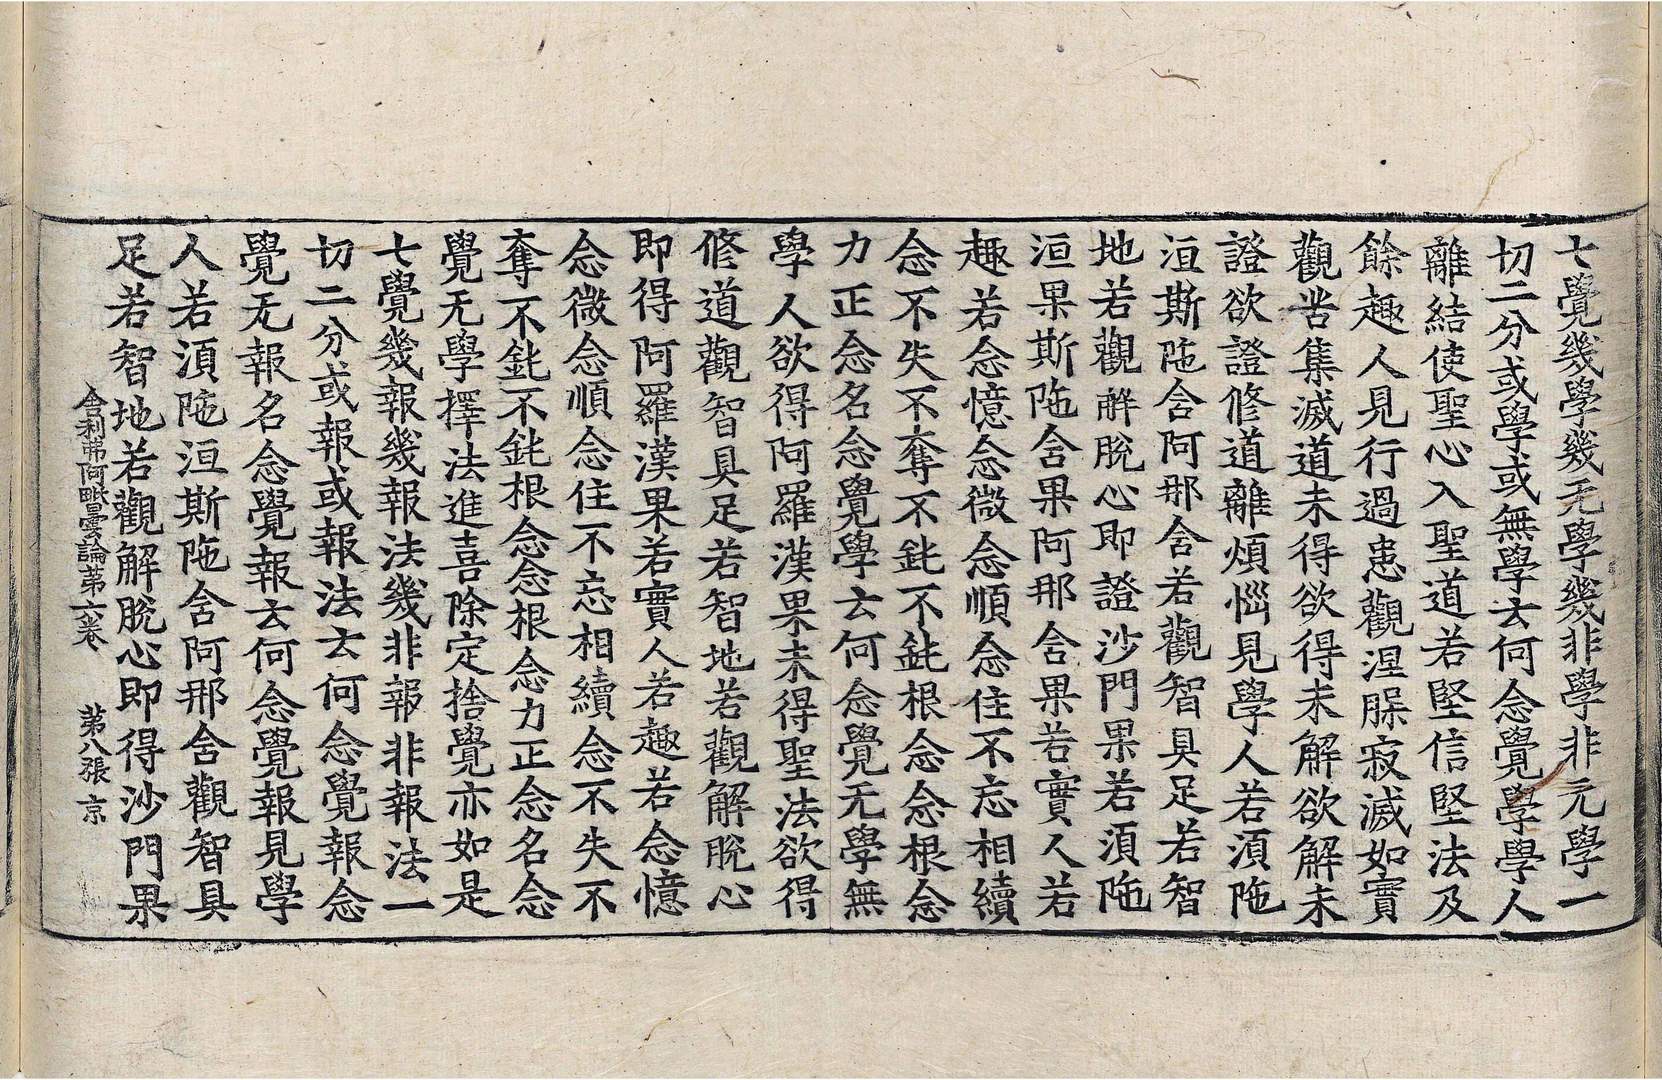 七覺幾學幾无學幾非學非无學一
切二分或學或無學云何念覺學學人
離結使聖心入聖道若堅信堅法及
餘趣人見行過患觀涅槃寂滅如實
觀苦集滅道未得欲得未解欲解未
證欲證修道離煩惱見學人若須陁
洹斯陁含阿那含若觀智具足若智
地若觀解脫心即證沙門果若須陁
洹果斯陁含果阿那含果若實人若
趣若念憶念微念順念住不忘相續
念不失不奪不鈍不鈍根念念根念
力正念名念覺學云何念覺无學無
學人欲得阿羅漢果未得聖法欲得
修道觀智具足若智地若觀解脫心
即得阿羅漢果若實人若趣若念憶
念微念順念住不忘相續念不失不
奪不鈍不鈍根念念根念力正念名念
覺无學擇法進喜除定捨覺亦如是
七覺幾報幾報法幾非報非報法一
切二分或報或報法云何念覺報念
覺无報名念覺報云何念覺報見學
人若須陁洹斯陁含阿那含觀智具
足若智地若觀解脫心即得沙門果
舍利弗阿毗曇論第六卷 第八張 京